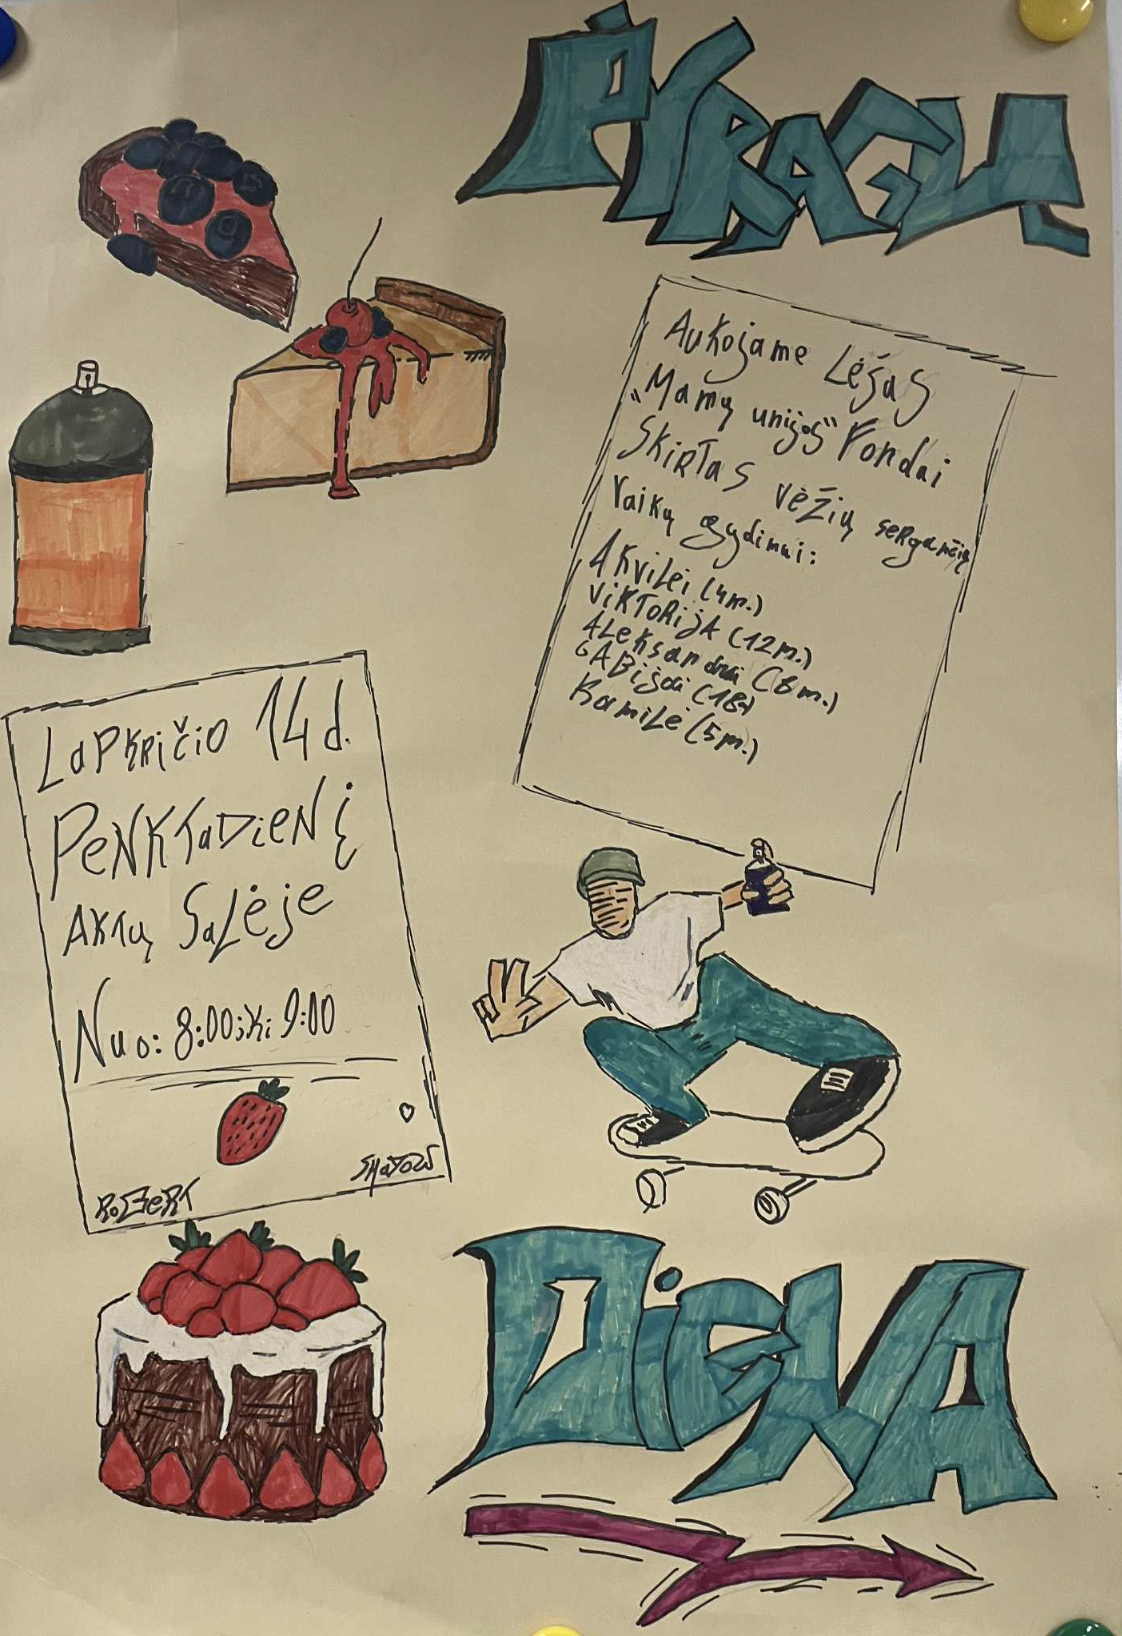 PYRAGŲ
Aukojame Lėšas
"Mamų unijos" Fondai
Skirtas vėžių sergančių
Vaikų gydimui:
Akvilei (4m.)
ViKTORijA (12m.)
ALeksandrai (8m.)
GABijai (18)
KamiLei (5m.)
LaPKRičio 14d.
PeNKTaDieNį
AKTų SaLėje
Nuo: 8:00iki 9:00
RoBeRT
DieNA